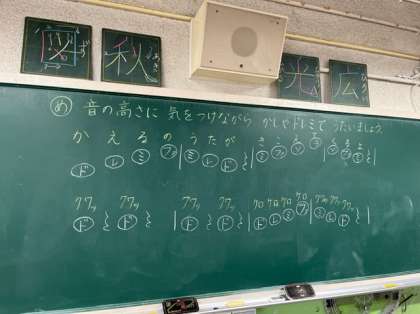 図 秋 光 広
め 音の高さに 気をつけながら かしやドレミで うたいましょう。
かえるのうたが
ド レ ミ ファ ミ レ ド ミ ファ ソ ラ ソ ファ ミ
クワッ クワッ クワッ クワッ ケロ ケロ ケロ ケロ クワッ クワッ クワッ
ド ド ド ド ド レ ミ ファ ミ レ ド